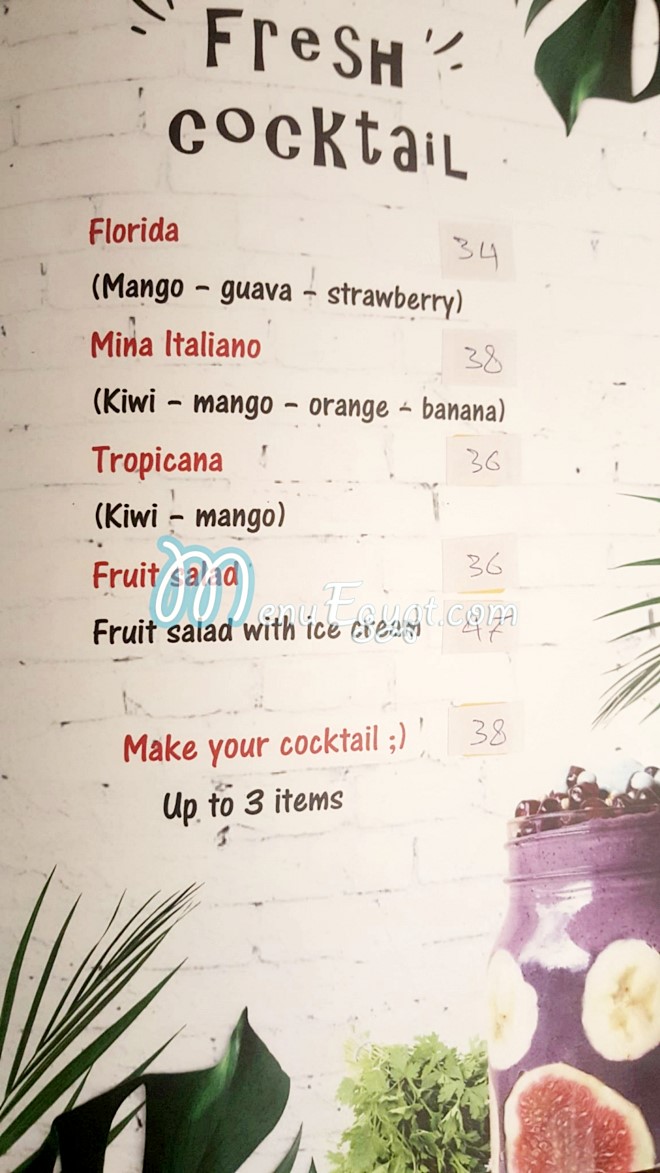 Fresh
cocktail
Florida 34
(Mango - guava - strawberry)
Mina Italiano 38
(Kiwi - mango - orange - banana)
Tropicana 36
(Kiwi - mango)
Fruit salad 36
MenuEgypt.com
Fruit salad with ice cream 47
Make your cocktail ;) 38
Up to 3 items